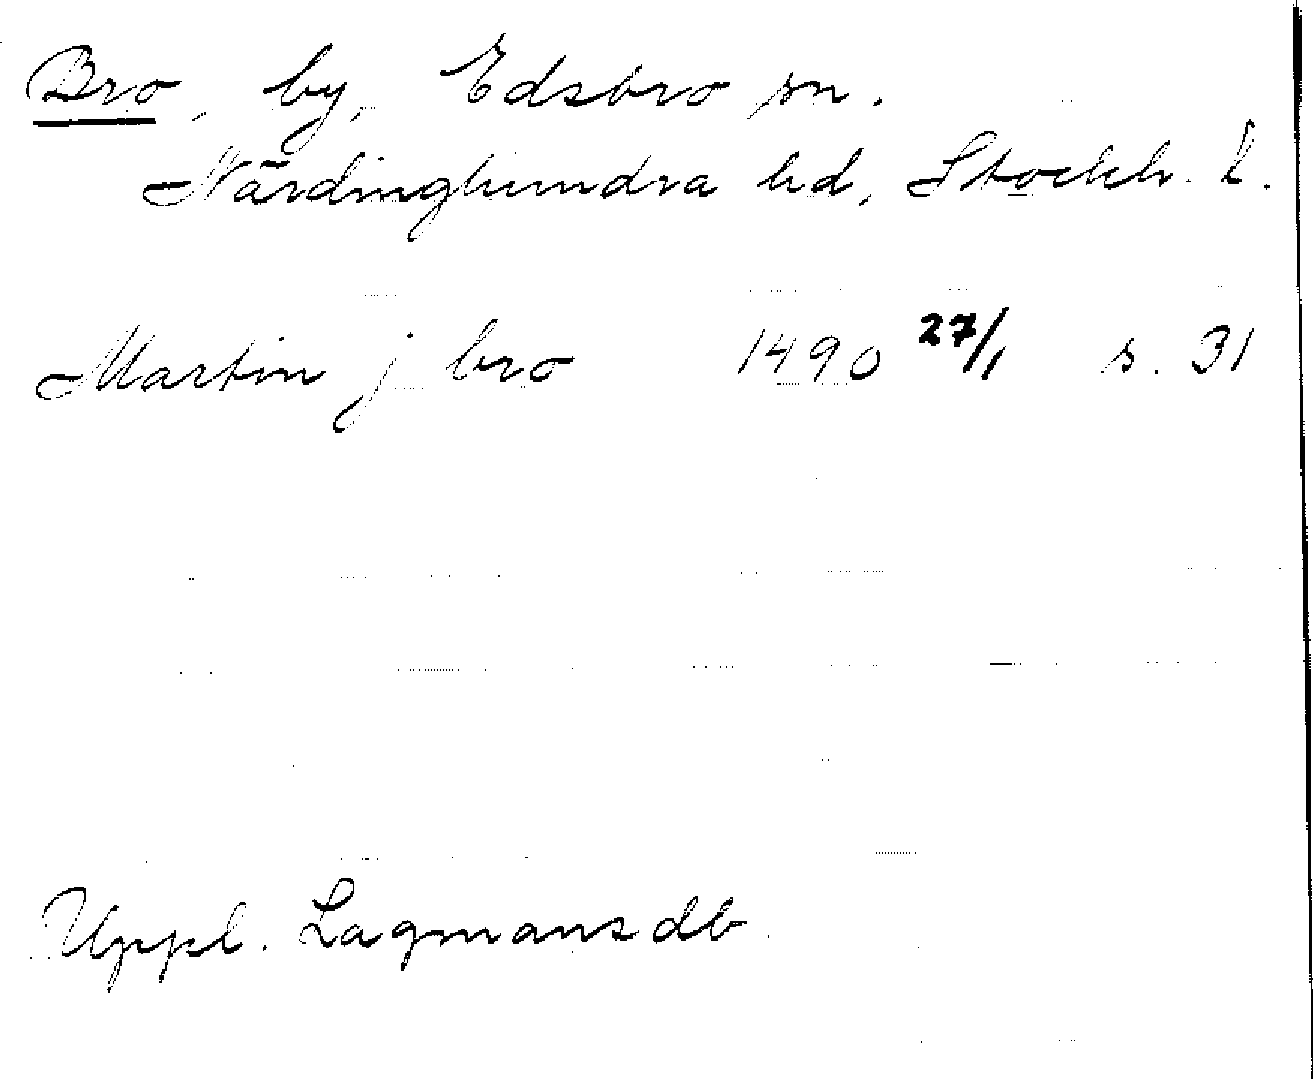 Bro, by, Edsbro sn.
Närdinghundra hd, Stockh. l.
Martin j bro 1490 27/1 s. 31
Uppl. Lagmansdb